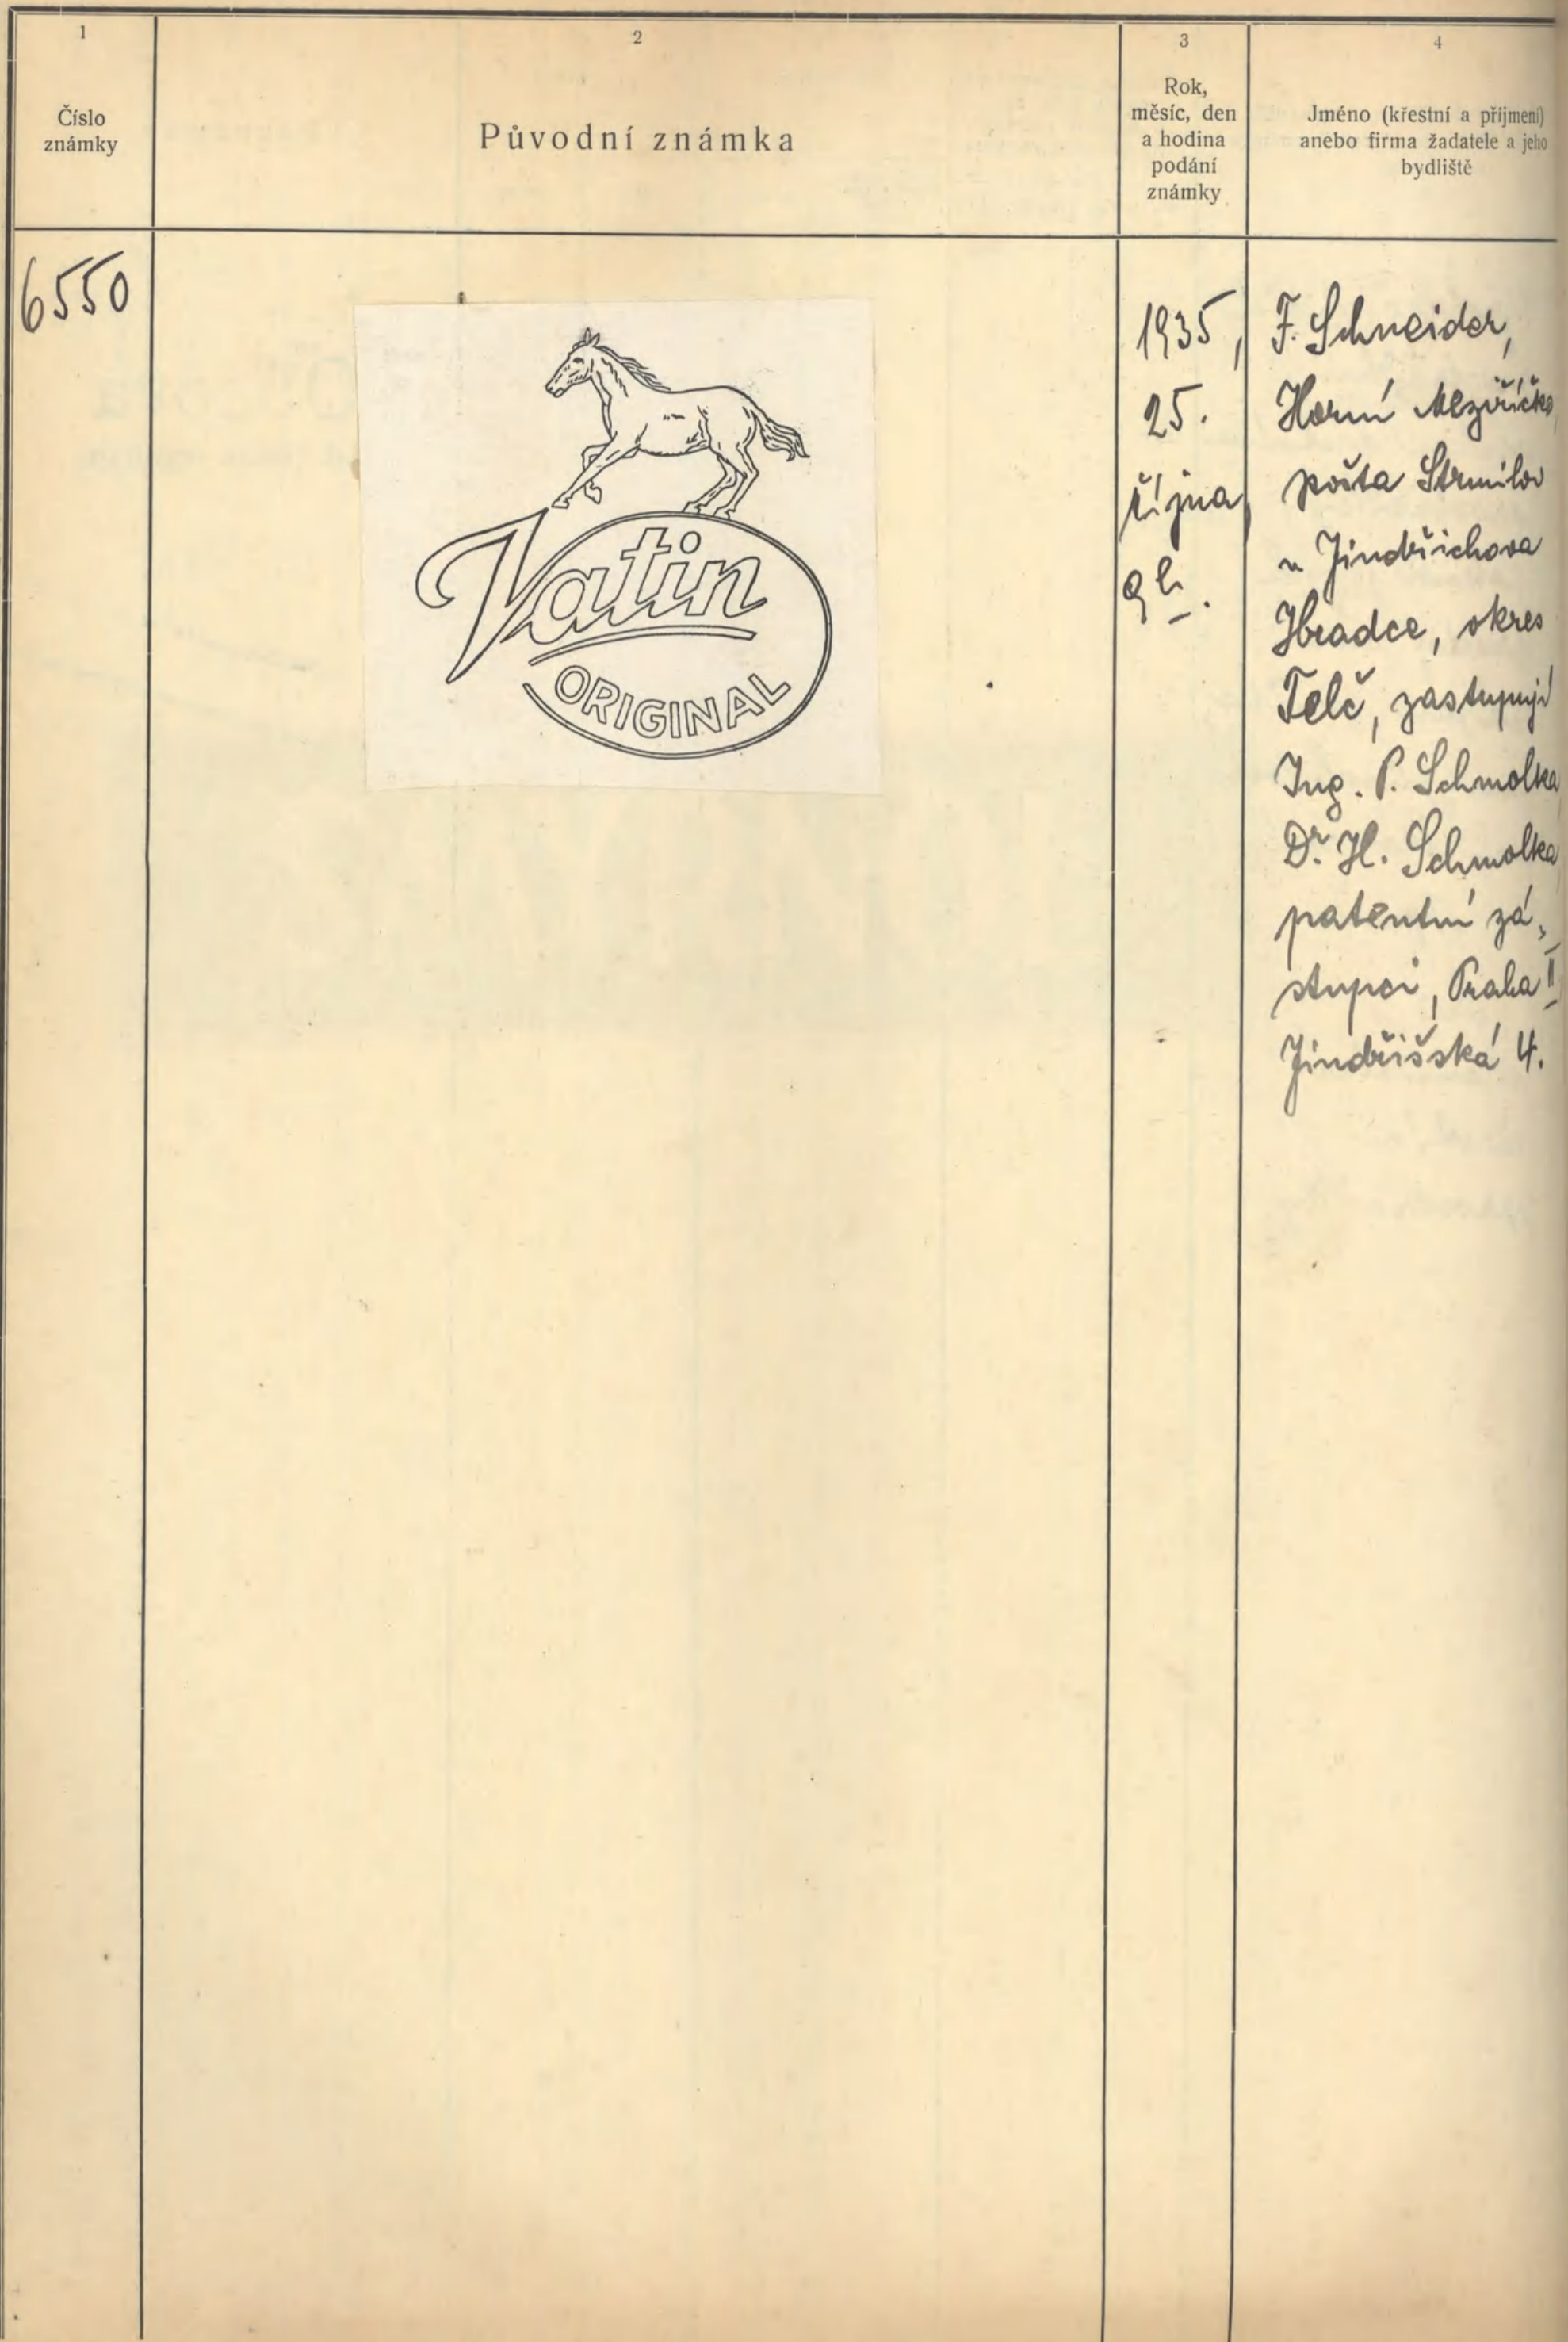 1
Číslo
známky
2
Původní známka
3
Rok,
měsíc, den
a hodina
podání
známky
4
Jméno (křestní a příjmení)
anebo firma žadatele a jeho
bydliště
6550
Vatin
ORIGINAL
1935,
25.
října,
9 h.
F. Schneider,
Horní Meziříčko,
pošta Strmilov
u Jindřichova
Hradce, okres
Telč, zastupují
Ing. P. Schmolka
Dr. H. Schmolka,
patentní zá-
stupci, Praha II
Jindřišská 4.